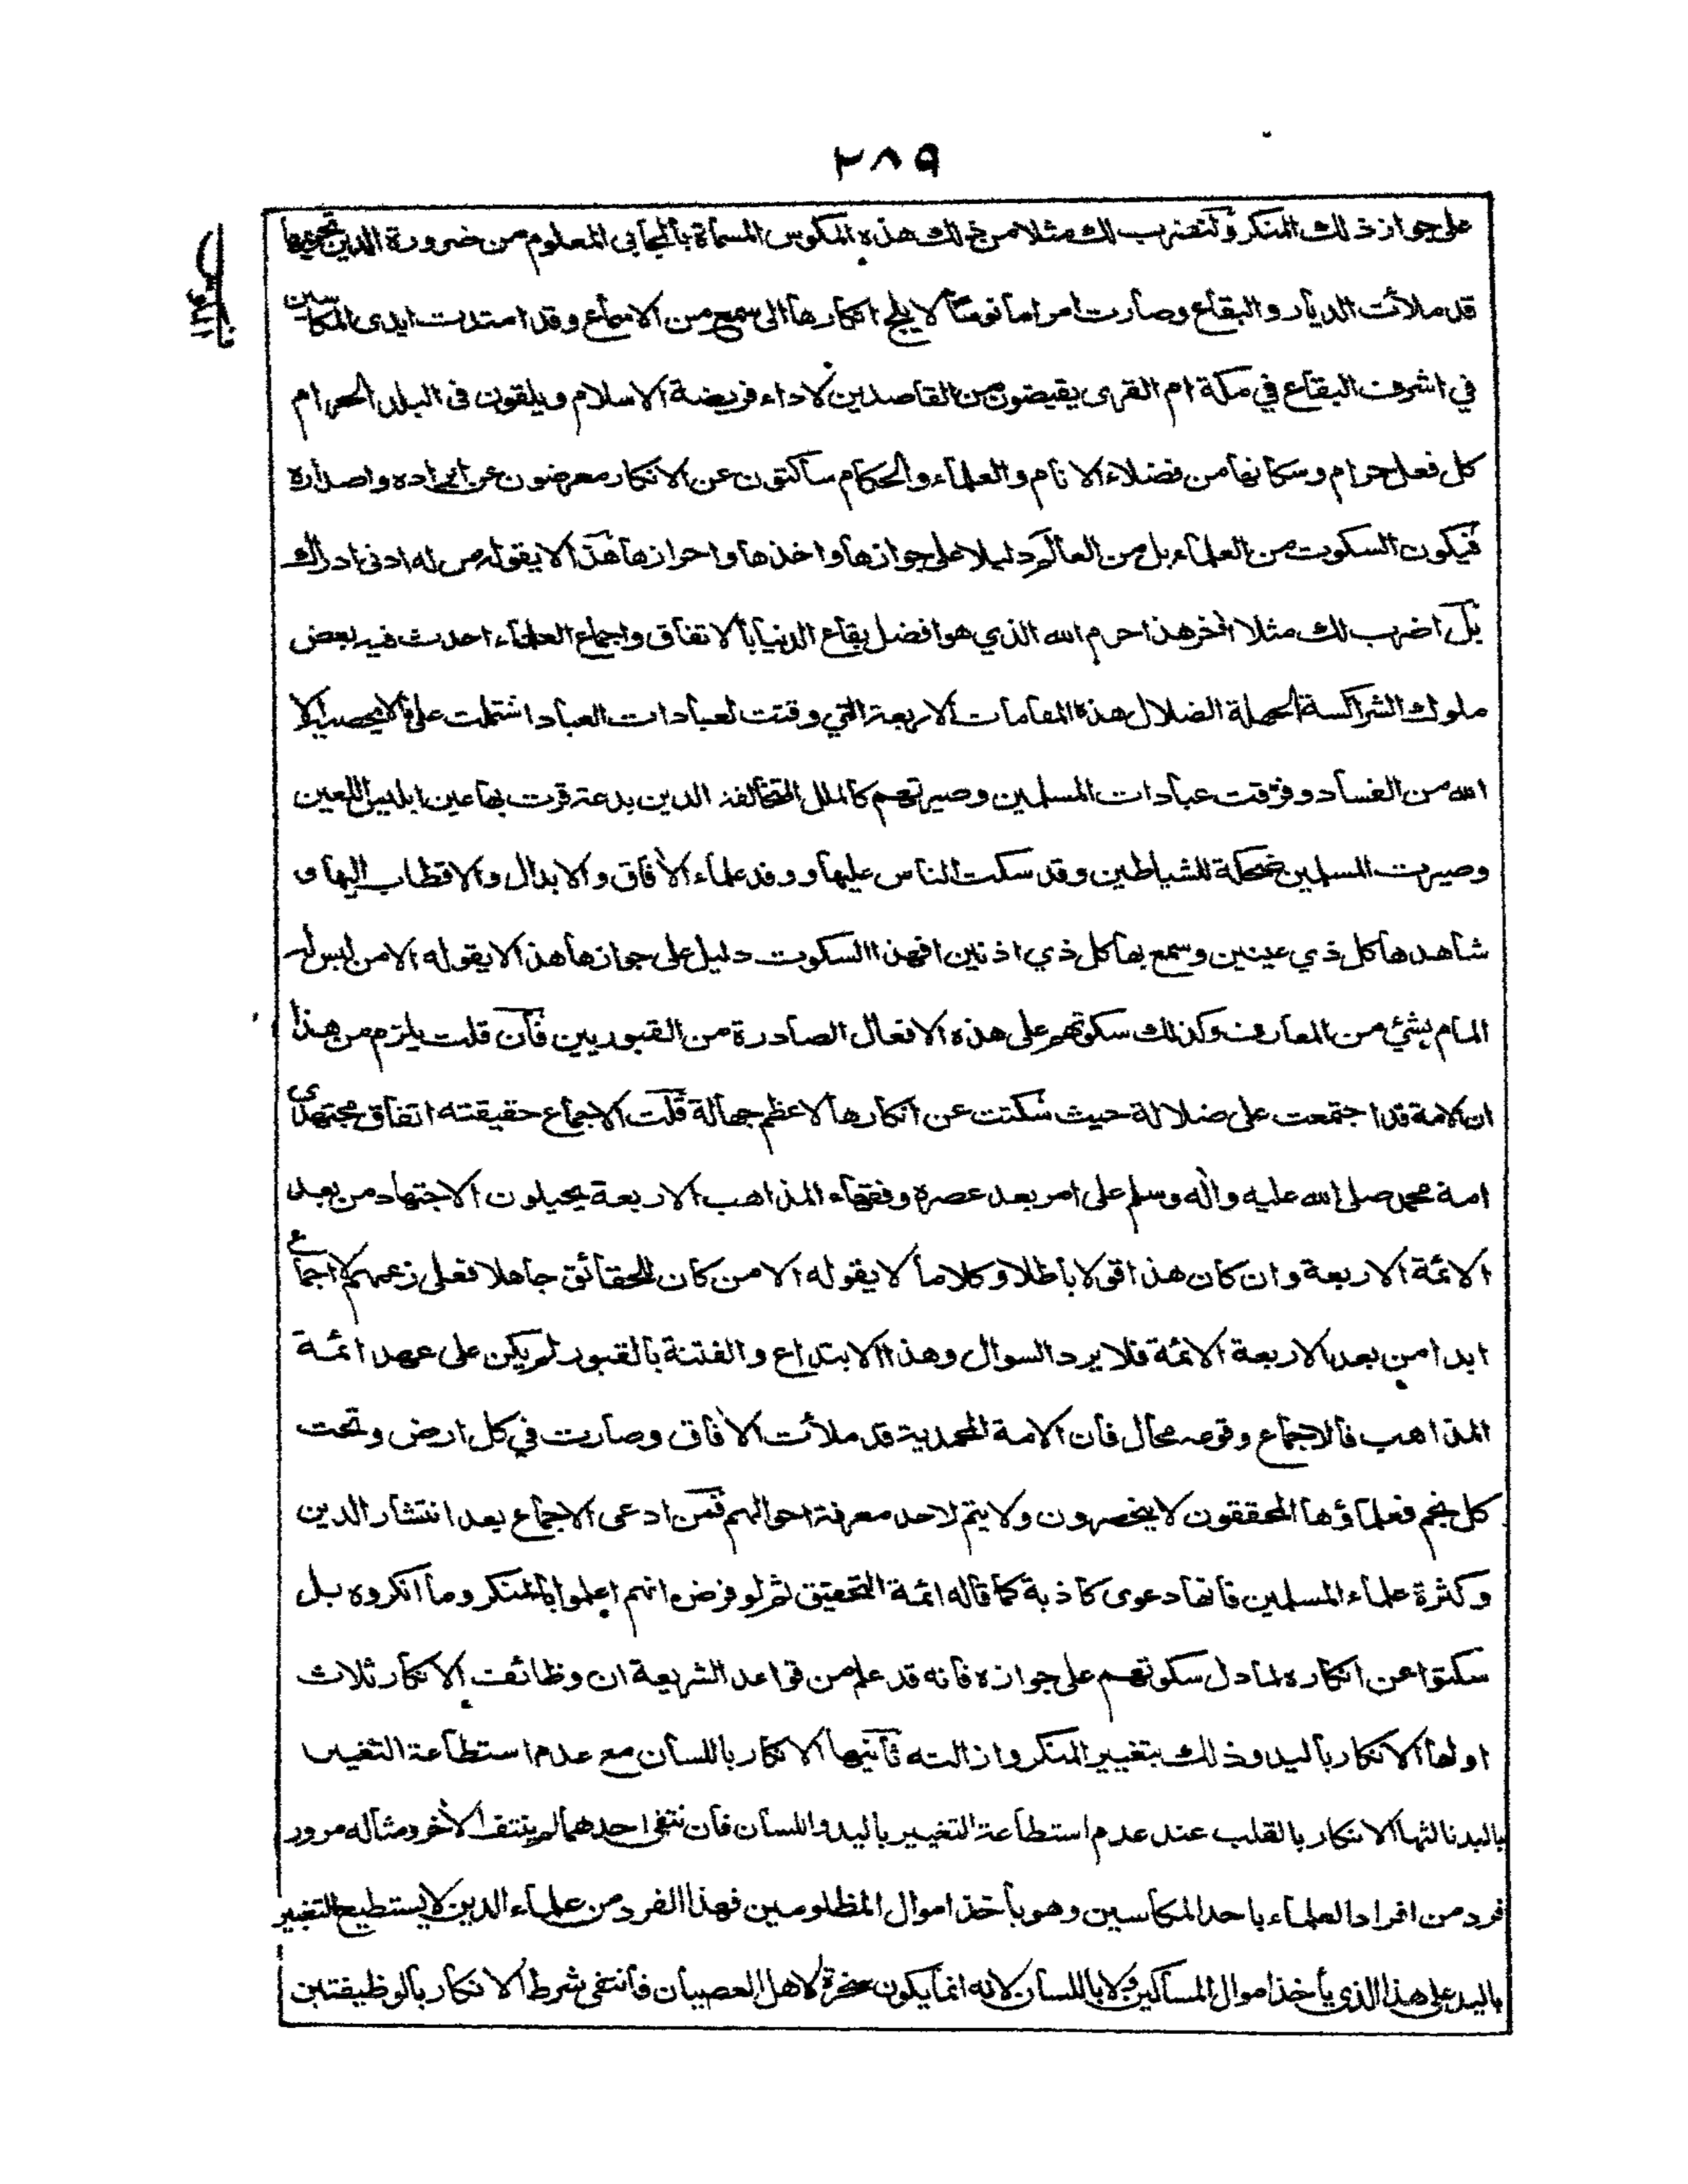 ٢٨٩
على جواز ذلك المنكر ولنضرب لك مثلا من ذلك هذه المكوس المسماة بالمجابى المعلوم من ضرورة الدين تحريمها
قد ملأت الديار والبقاع وصارت امرا مأنوسا لا يلج انكارها الى سمع من الاسماع وقد امتدت ايدى المكاسين
في اشرف البقاع في مكة ام القرى يقبضون من القاصدين لاداء فريضة الاسلام ويلقون فى البلد الحرام
كل فعل حرام وسكانها من فضلاء الانام والعلماء والحكام ساكتون عن الانكار معرضون عن ايراده واصداره
فيكون السكوت من العلماء بل من العالم دليلا على جوازها واخذها واحرازها هذا لا يقوله من له ادنى ادراك
بل اضرب لك مثلا اخر هذا حرم الله الذي هو افضل بقاع الدنيا بالاتفاق واجماع العلماء احدث فيه بعض
ملوك الشراكسة الجهلة الضلال هذه المقامات الاربعة التي وقتت لعبادات العباد اشتملت على ما لا يحصيه الا
الله من الفساد وفرّقت عبادات المسلمين وصيرتهم كالملل المتخالفة الدين بدعة قرت بها عين ابليس اللعين
وصيرت المسلمين ضحكة للشياطين وقد سكت الناس عليها ووفد علماء الأفاق والابدال والاقطاب اليها و
شاهدها كل ذي عينين وسمع بها كل ذي اذنين افهذا السكوت دليل على جوازها هذا لا يقوله الا من ليس له
المام بشئ من المعارف وكذلك سكوتهم على هذه الافعال الصادرة من القبوريين فان قلت يلزم من هذا
ان الامة قد اجتمعت على ضلالة حيث سكتت عن انكارها لاعظم جهالة قلت الاجماع حقيقته اتفاق مجتهدى
امة محمد صلى الله عليه واله وسلم على امر بعد عصره وفقهاء المذاهب الاربعة يحيلون الاجتهاد من بعد
الائمة الاربعة وان كان هذا قولا باطلا وكلاما لا يقوله الا من كان للحقائق جاهلا فعلى زعمهم لا اجماع
ابدا من بعد الاربعة الائمة فلا يرد السوال وهذا الابتداع والفتنة بالقبور لم يكن على عهد ائمة
المذاهب فالاجماع وقوعه محال فان الامة المحمدية قد ملأت الأفاق وصارت في كل ارض وتحت
كل نجم فعلماؤها المحققون لا ينحصرون ولا يتم لاحد معرفة احوالهم فمن ادعى الاجماع بعد انتشار الدين
وكثرة علماء المسلمين فانها دعوى كاذبة كما قاله ائمة التحقيق ثم لو فرض انهم اعلموا بالمنكر وما انكروه بل
سكتوا عن انكاره لما دل سكوتهم على جوازه فانه قد علم من قواعد الشريعة ان وظائف الانكار ثلاث
اولها الانكار باليد وذلك بتغيير المنكر وازالته ثانيها الانكار باللسان مع عدم استطاعة التغيير
باليد ثالثها الانكار بالقلب عند عدم استطاعة التغيير باليد واللسان فان نتفى احدهما لم ينتف الأخر ومثاله مرور
فرد من افراد العلماء باحد المكاسين وهو يأخذ اموال المظلومين فهذا الفرد من علماء الدين لا يستطيع التغيير
باليد على هذا الذي يأخذ اموال المساكين ولا باللسان لانه انما يكون سخرة لاهل العصيان فانتفى شرط الانكار بالوظيفتين